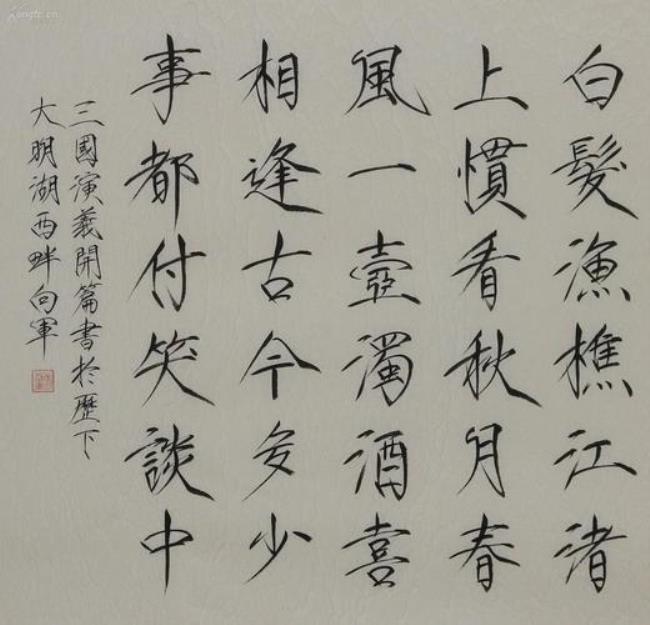 白髮漁樵江渚
上慣看秋月春
風一壺濁酒喜
相逢古今多少
事都付笑談中
三國演義開篇書於歷下
大明湖西畔向軍